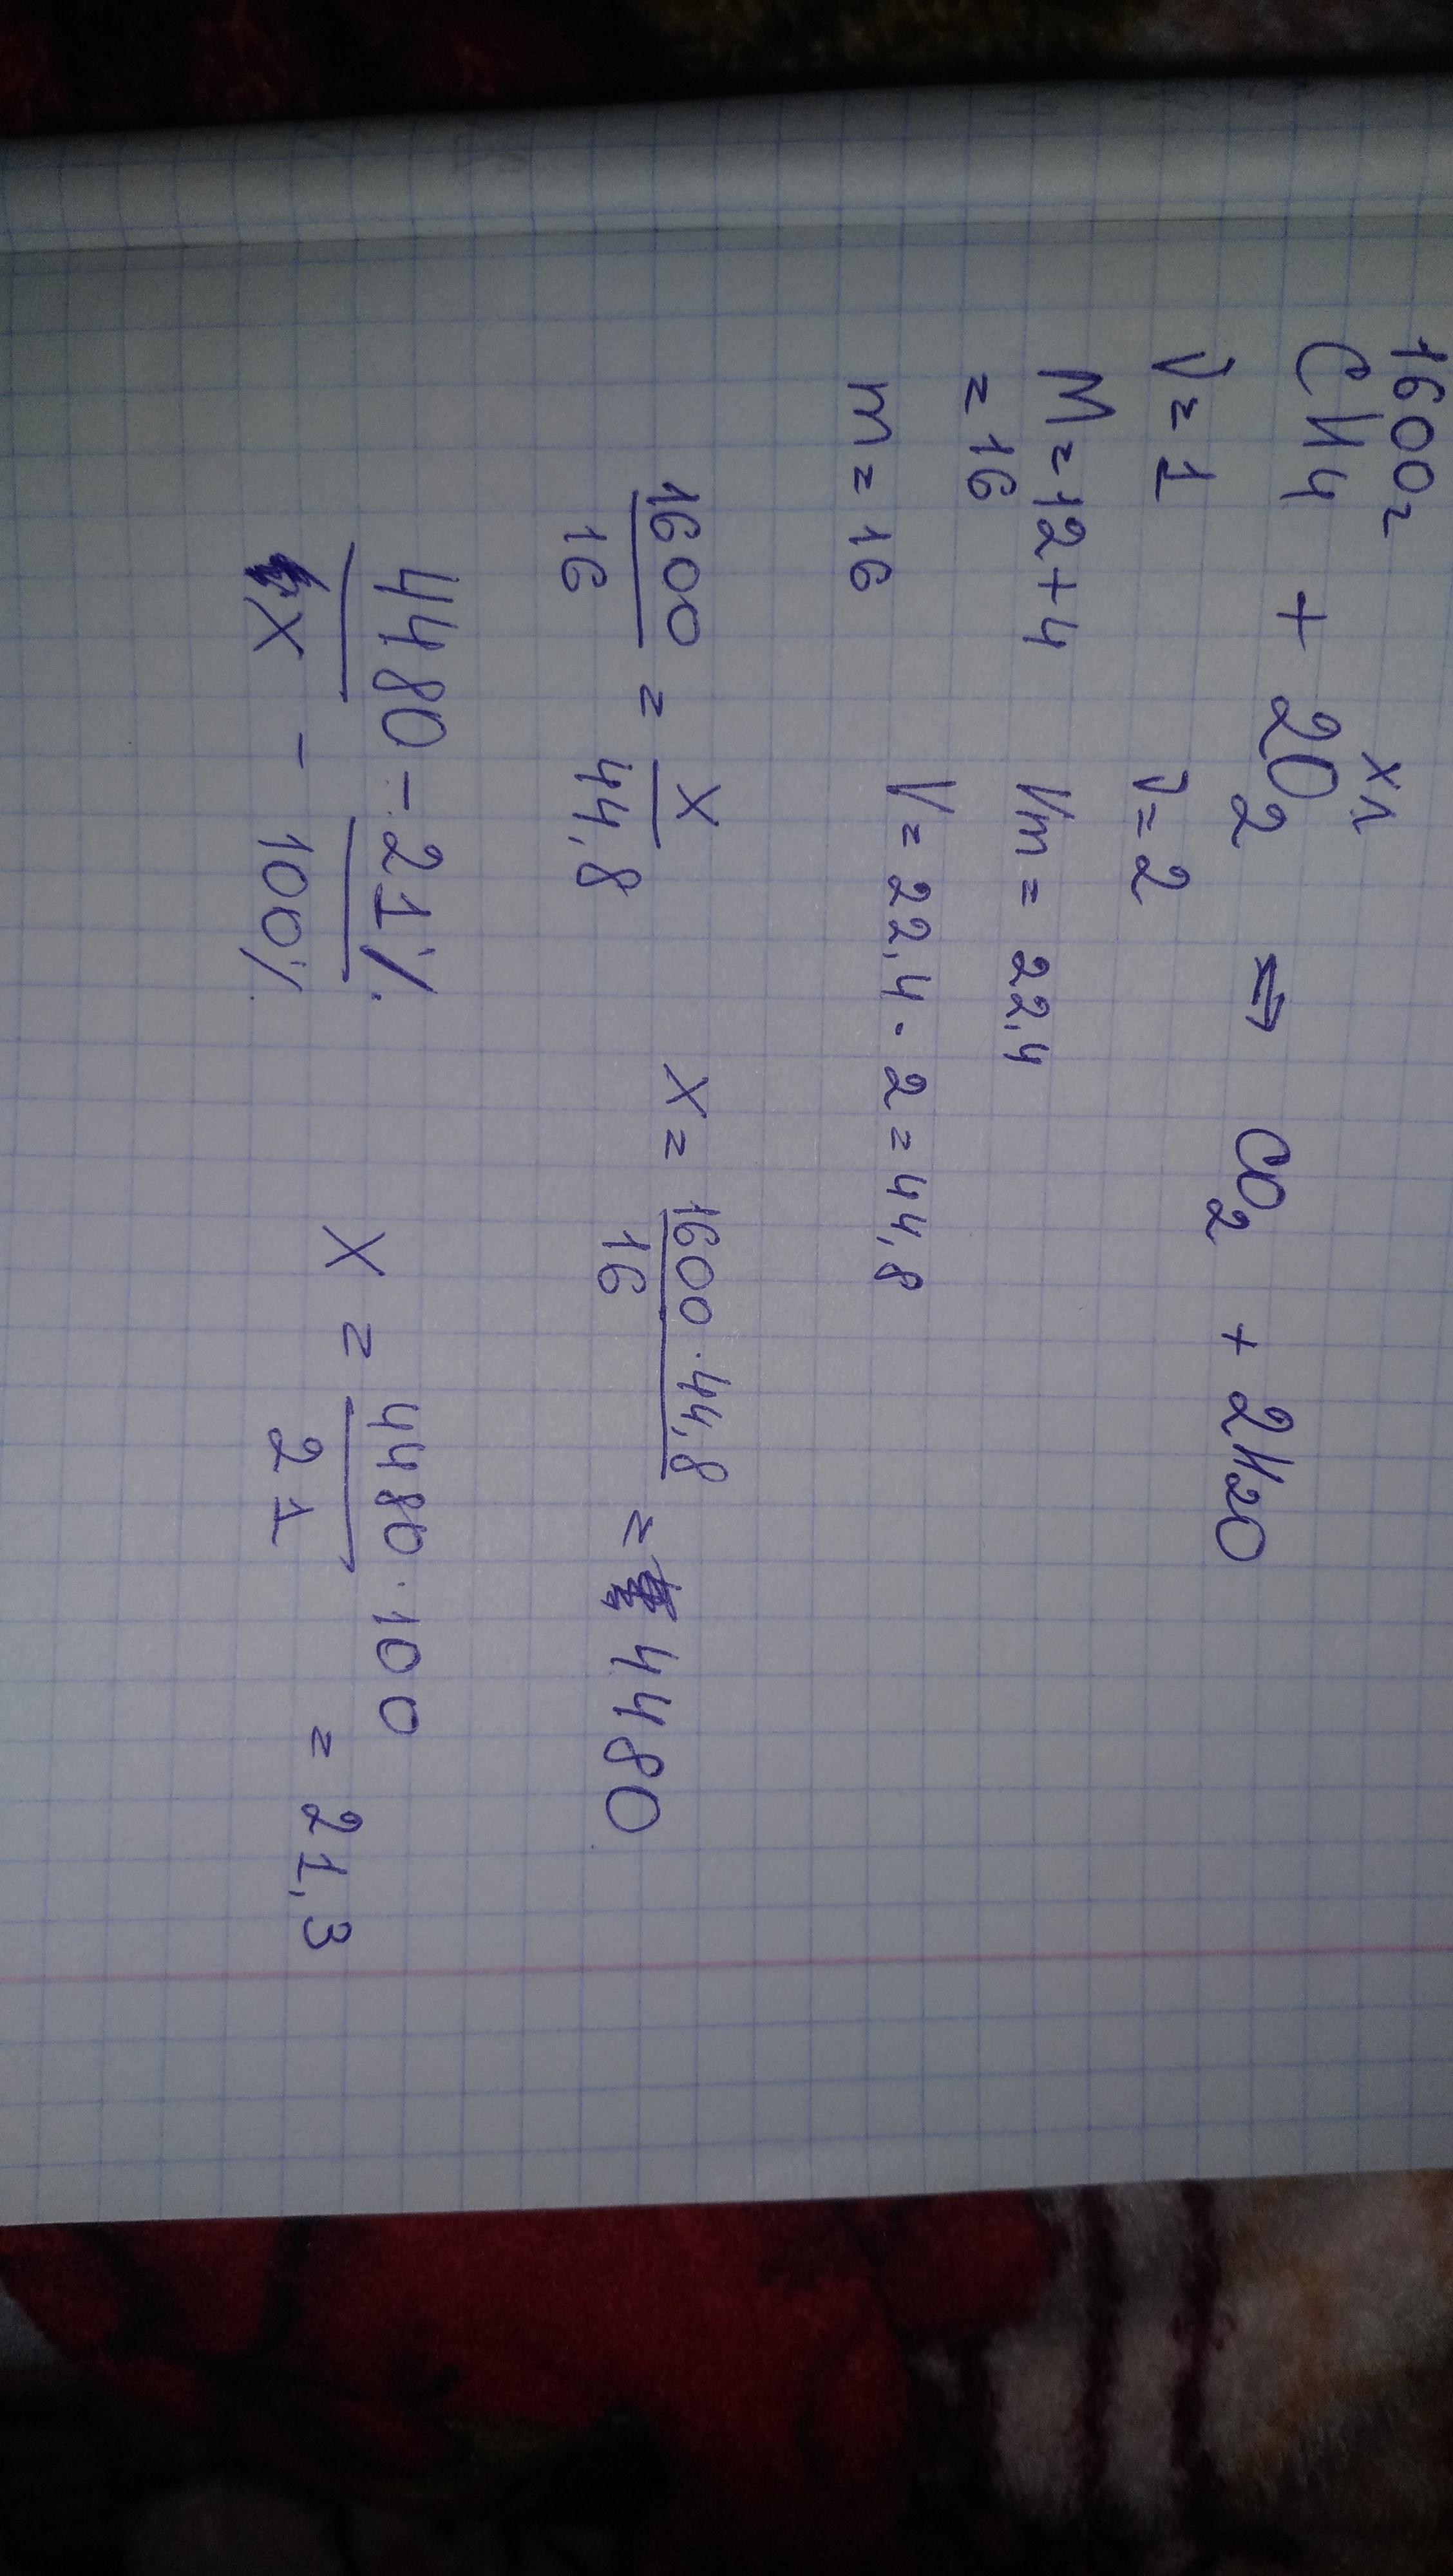 1600г xл
CH4 + 2O2 => CO2 + 2H2O
ν=1 ν=2
M=12+4 Vm = 22,4
=16
m=16 V=22,4·2=44,8
1600/16 = x/44,8 x= 1600·44,8/16 = 4480
4480 – 21%
x – 100%
x = 4480·100/21 = 21,3